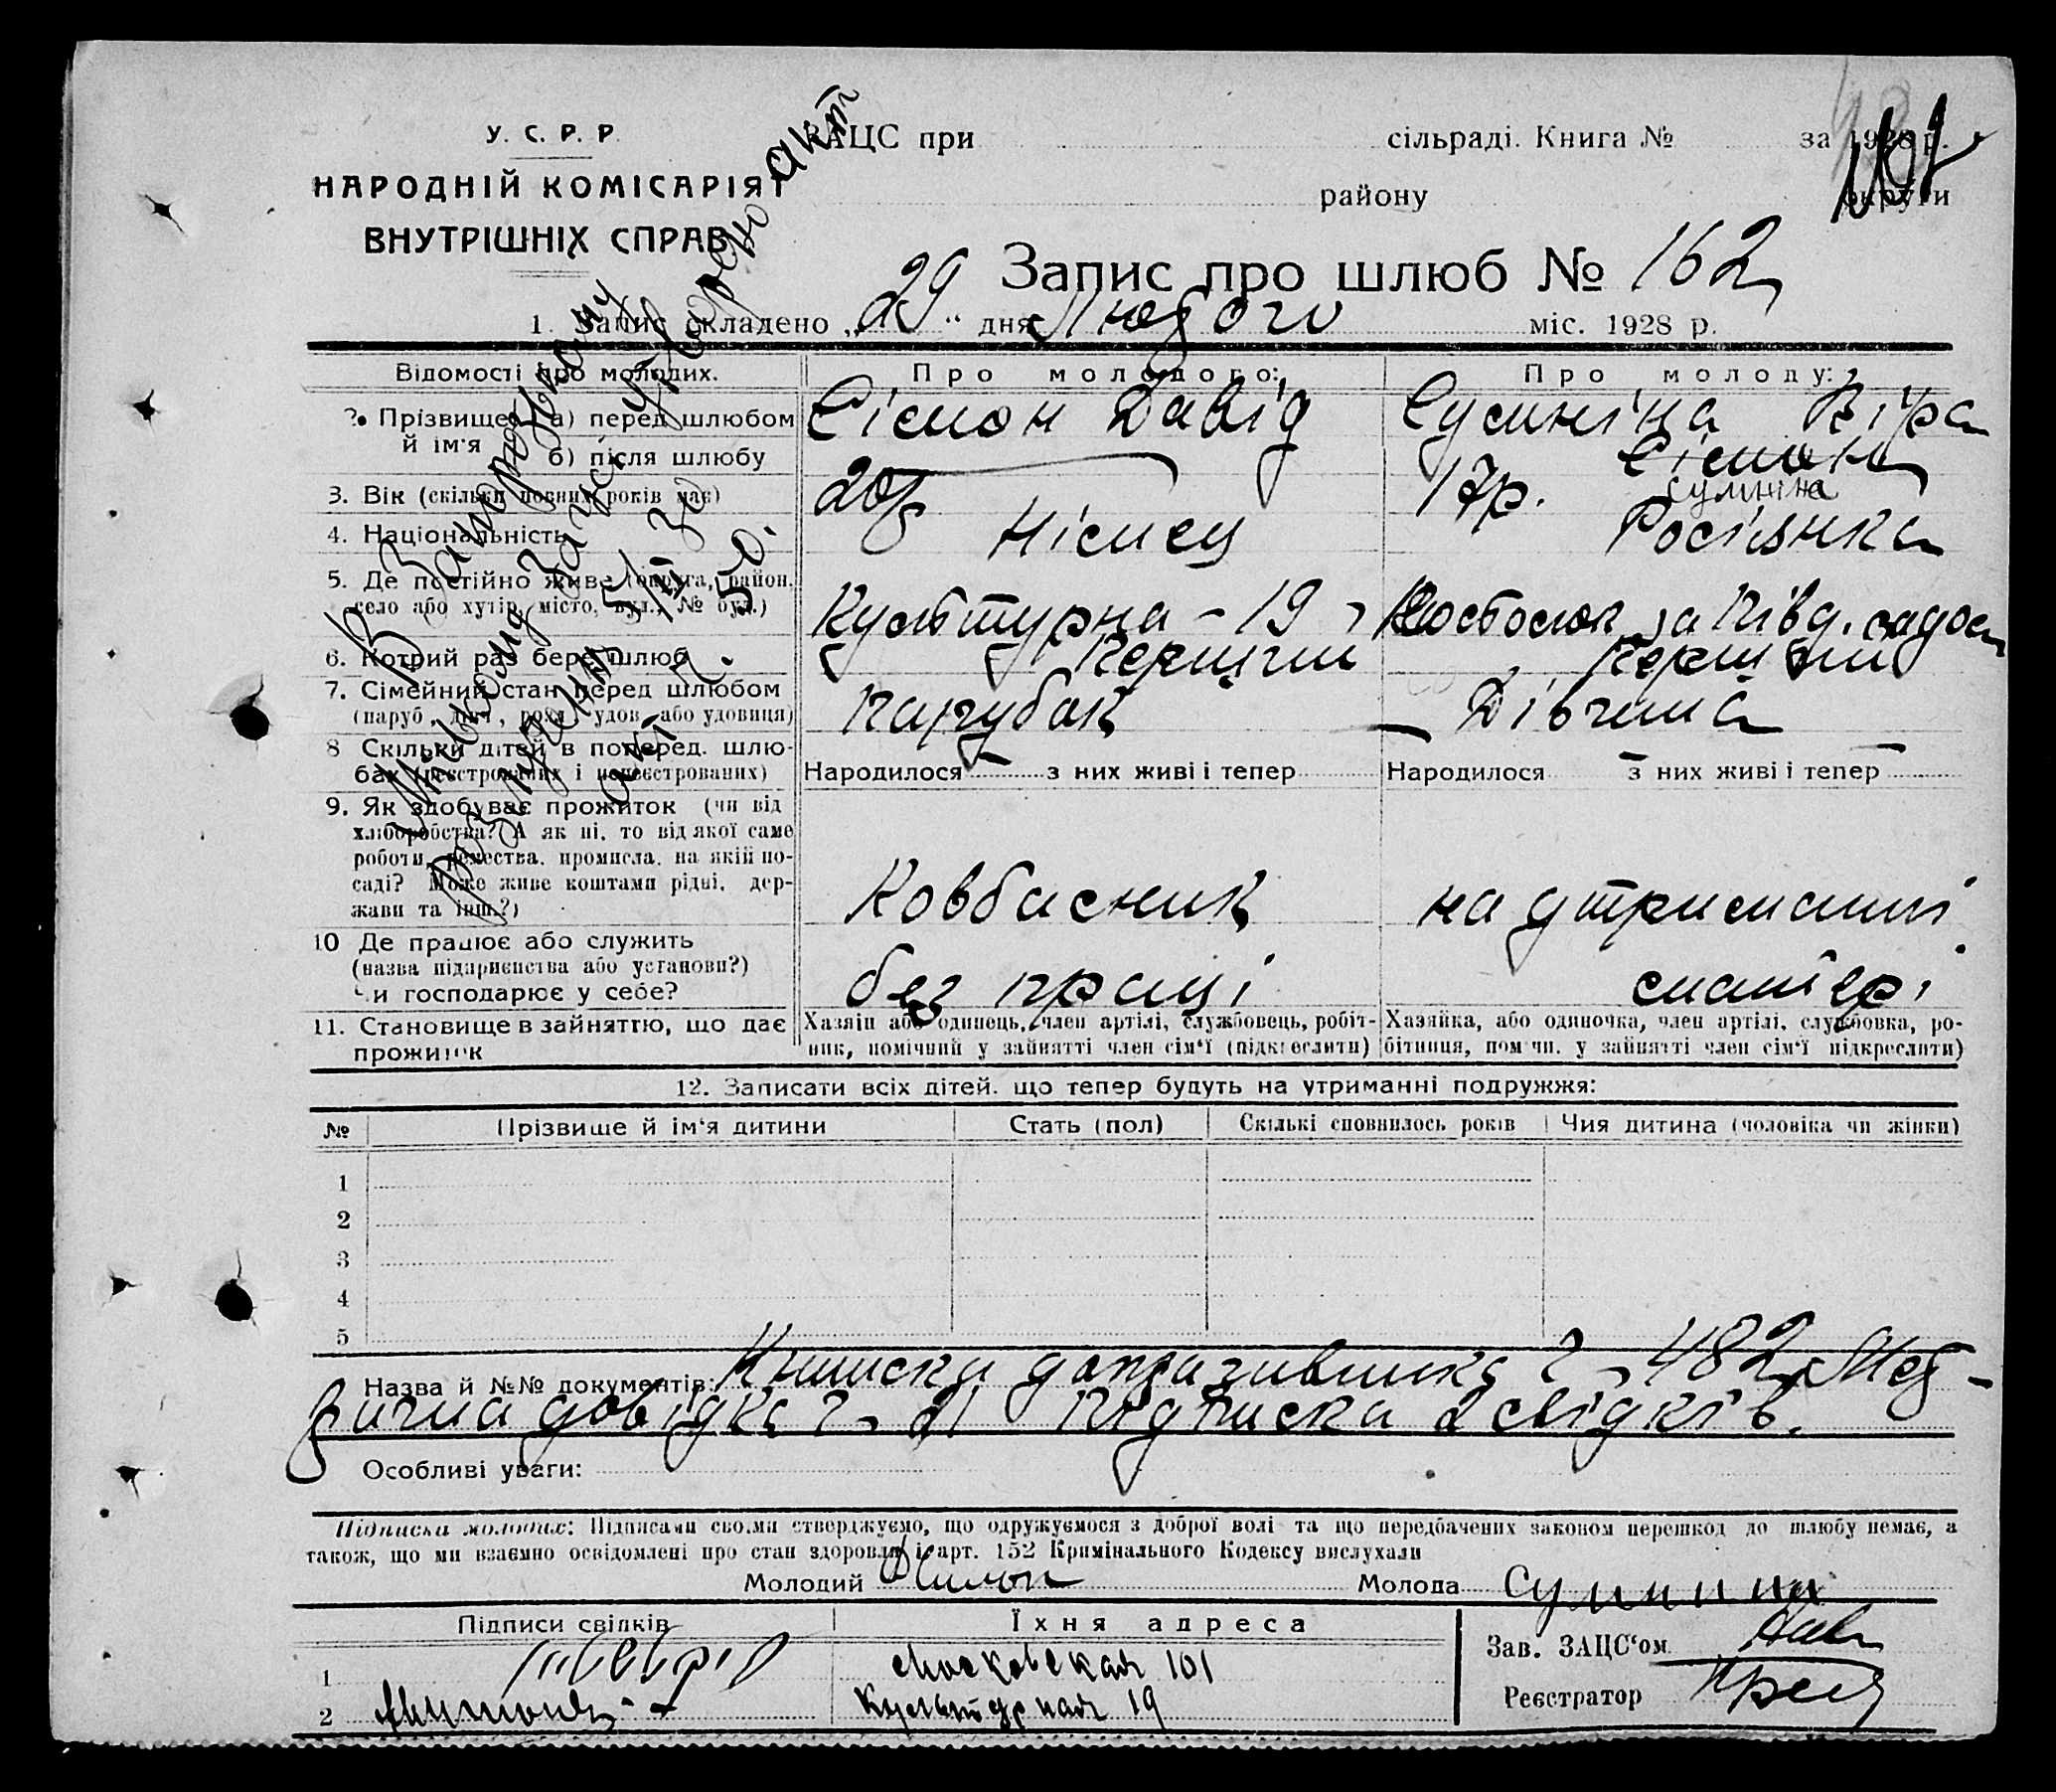 У. С. Р. Р.
НАРОДНІЙ КОМІСАРІЯТ
ВНУТРІШНІХ СПРАВ
ЗАЦС при сільраді. Книга № за 1928 р.
району округи
Запис про шлюб № 162
1. Запис складено „29“ дня Лютого міс. 1928 р.
Відомості про молодих.
Про молодого:
Про молоду:
2. Прізвище й ім'я а) перед шлюбом
Сімон Давід
Суміна Віра
б) після шлюбу
Сімон
Суміна
3. Вік (скільки повних років має)
20р
17р.
4. Національність
Німец
Росіянка
5. Де постійно живе (округа, район, село або хутір, місто, вул., № буд.)
Культурна - 19
за Півд. садом
6. Котрий раз бере шлюб
Перший
Перший
7. Сімейний стан перед шлюбом
(паруб., дівч., розл., удов. або удовиця)
Парубок
Дівчина
8 Скільки дітей в поперед. шлю-
бах (реєстрованих і нереєстрованих)
Народилося — з них живі і тепер
Народилося з них живі і тепер —
9. Як здобуває прожиток (чи від
хліборобства? А як ні, то від якої саме
роботи, ремества, промисла, на якій по-
саді? Може живе коштами рідні, дер-
жави та інш.?)
Ковбасник
на утриманні
10 Де працює або служить
(назва підприємства або установи?)
Чи господарює у себе?
без праці
матері
11. Становище в зайняттю, що дає
прожиток
Хазяїн або одинець, член артілі, службовець, робіт-
ник, помічний у зайнятті член сім'ї (підкреслити)
Хазяйка, або одиночка, член артілі, службовка, ро-
бітниця, помічн. у зайнятті член сім'ї підкреслити)
12. Записати всіх дітей, що тепер будуть на утриманні подружжя:
№ Прізвище й ім'я дитини Стать (пол) Скількі сповнилось років Чия дитина (чоловіка чи жінки)
1
2
3
4
5
Назва й №№ документів: Книжка допризивника ч - 482, Мед-
ична довідка ч - 21 Підписка 2 свідків.
Особливі уваги:
Підписка молодих: Підписами своїми стверджуємо, що одружуємося з доброї волі та що передбачених законом перешкод до шлюбу немає, а
також, що ми взаємно освідомлені про стан здоровля і арт. 152 Кримінального Кодексу вислухали
Молодий Симон Молода Сумина
Підписи свідків
Їхня адреса
1 Московская 101
2 Культурная 19
Зав. ЗАЦС'ом
Реєстратор
В Запорізькому
Міськом. Загсі утворено акт
Розлучення 5/III 30
акт ч. 50.